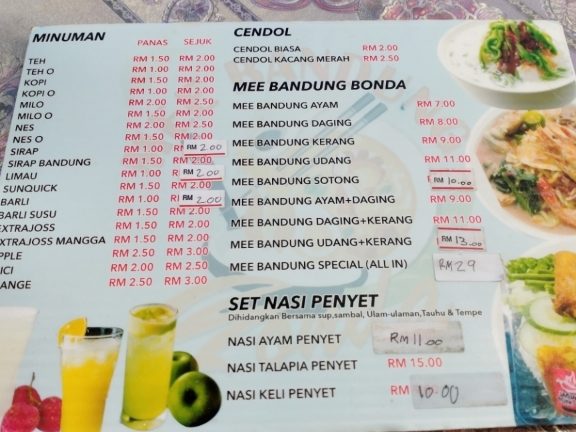 MINUMAN
PANAS SEJUK
TEH RM 1.50 RM 2.00
TEH O RM 1.00 RM 2.00
KOPI RM 1.50 RM 2.00
KOPI O RM 1.00 RM 2.00
MILO RM 2.00 RM 2.50
MILO O RM 1.50 RM 2.00
NES RM 2.00 RM 2.50
NES O RM 1.50 RM 2.00
SIRAP RM 1.00 RM 2.00
SIRAP BANDUNG RM 1.50 RM 2.00
LIMAU RM 1.00 RM 2.00
SUNQUICK RM 1.50 RM 2.00
BARLI RM 1.00 RM 2.00
BARLI SUSU RM 1.50 RM 2.50
EXTRAJOSS RM 1.50 RM 2.00
EXTRAJOSS MANGGA RM 1.50 RM 2.00
PPLE RM 2.50 RM 3.00
ICI RM 2.00 RM 2.50
ANGE RM 2.50 RM 3.00
CENDOL
CENDOL BIASA RM 2.00
CENDOL KACANG MERAH RM 2.50
MEE BANDUNG BONDA
MEE BANDUNG AYAM RM 7.00
MEE BANDUNG DAGING RM 8.00
MEE BANDUNG KERANG RM 9.00
MEE BANDUNG UDANG RM 11.00
MEE BANDUNG SOTONG RM 10.00
MEE BANDUNG AYAM+DAGING RM 9.00
MEE BANDUNG DAGING+KERANG RM 11.00
MEE BANDUNG UDANG+KERANG RM 13.00
MEE BANDUNG SPECIAL (ALL IN) RM 29
SET NASI PENYET
Dihidangkan Bersama sup,sambal, Ulam-ulaman,Tauhu & Tempe
NASI AYAM PENYET RM 11.00
NASI TALAPIA PENYET RM 15.00
NASI KELI PENYET RM 10.00